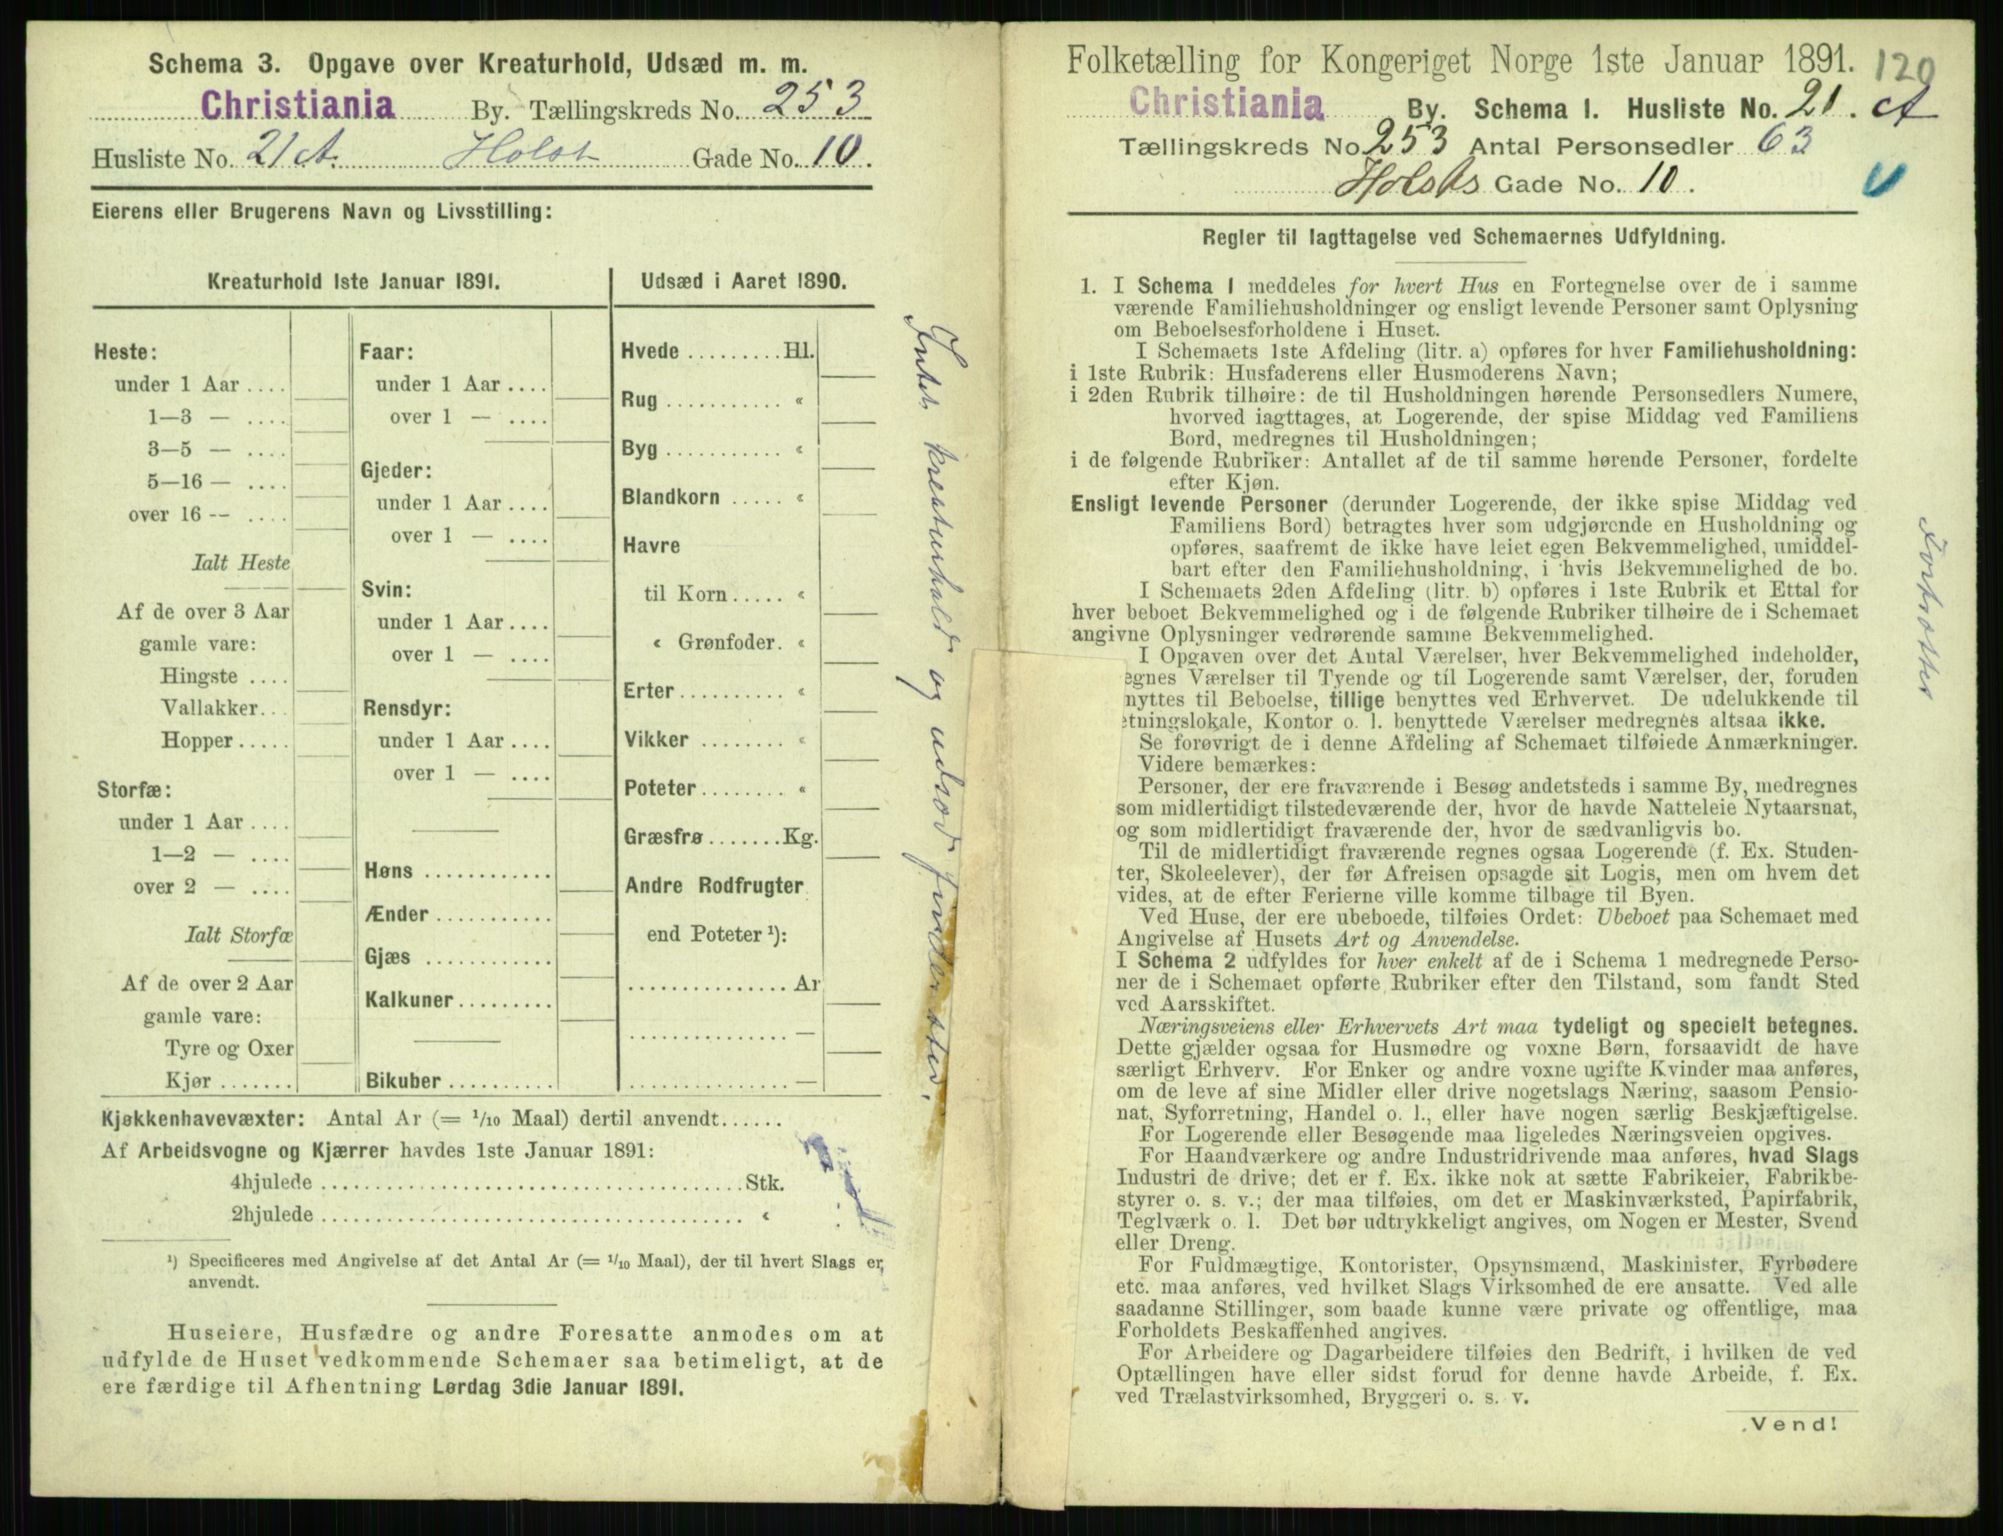 Schema 3. Opgave over Kreaturhold, Udsæd m. m.
Christiania By. Tællingskreds No. 253
Husliste No. 21 A. Holst Gade No. 10.
Eierens eller Brugerens Navn og Livsstilling:
Kreaturhold 1ste Januar 1891.
Heste:
under 1 Aar ....
1—3 — ....
3—5 — ....
5—16 — ....
over 16 -- ....
Ialt Heste
Af de over 3 Aar
gamle vare:
Hingste ....
Vallakker...
Hopper.....
Storfæ:
under 1 Aar ....
1—2 — ....
over 2 — ....
Ialt Storfæ
Af de over 2 Aar
gamle vare:
Tyre og Oxer
Kjør .......
Faar:
under 1 Aar ....
over 1 — ....
Gjeder:
under 1 Aar ....
over 1 — ....
Svin:
under 1 Aar ....
over 1 — ....
Rensdyr:
under 1 Aar ....
over 1 — ....
Høns ............
Ænder ...........
Gjæs ............
Kalkuner .........
Bikuber ..........
Udsæd i Aaret 1890.
Hvede .........Hl.
Rug ........... «
Byg ........... «
Blandkorn ..... «
Havre
til Korn ..... «
« Grønfoder. «
Erter .......... «
Vikker ........ «
Poteter ........ «
Græsfrø .......Kg.
Andre Rodfrugter
end Poteter ¹):
............... Ar
............... —
............... —
Intet kreaturhold og udsæd finder sted.
Kjøkkenhavevæxter: Antal Ar (= 1/10 Maal) dertil anvendt......
Af Arbeidsvogne og Kjærrer havdes 1ste Januar 1891:
4hjulede ......................................Stk.
2hjulede ...................................... «
¹) Specificeres med Angivelse af det Antal Ar (= 1/10 Maal), der til hvert Slags er
anvendt.
Huseiere, Husfædre og andre Foresatte anmodes om at
udfylde de Huset vedkommende Schemaer saa betimeligt, at de
ere færdige til Afhentning Lørdag 3die Januar 1891.
Folketælling for Kongeriget Norge 1ste Januar 1891. 120
Christiania By. Schema 1. Husliste No. 21. A
Tællingskreds No. 253 Antal Personsedler 63
Holsts Gade No. 10.
Regler til Iagttagelse ved Schemaernes Udfyldning.
1. I Schema 1 meddeles for hvert Hus en Fortegnelse over de i samme
værende Familiehusholdninger og ensligt levende Personer samt Oplysning
om Beboelsesforholdene i Huset.
I Schemaets 1ste Afdeling (litr. a) opføres for hver Familiehusholdning:
i 1ste Rubrik: Husfaderens eller Husmoderens Navn;
i 2den Rubrik tilhøire: de til Husholdningen hørende Personsedlers Numere,
hvorved iagttages, at Logerende, der spise Middag ved Familiens
Bord, medregnes til Husholdningen;
i de følgende Rubriker: Antallet af de til samme hørende Personer, fordelte
efter Kjøn.
Ensligt levende Personer (derunder Logerende, der ikke spise Middag ved
Familiens Bord) betragtes hver som udgjørende en Husholdning og
opføres, saafremt de ikke have leiet egen Bekvemmelighed, umiddel-
bart efter den Familiehusholdning, i hvis Bekvemmelighed de bo.
I Schemaets 2den Afdeling (litr. b) opføres i 1ste Rubrik et Ettal for
hver beboet Bekvemmelighed og i de følgende Rubriker tilhøire de i Schemaet
angivne Oplysninger vedrørende samme Bekvemmelighed.
I Opgaven over det Antal Værelser, hver Bekvemmelighed indeholder,
egnes Værelser til Tyende og til Logerende samt Værelser, der, foruden
nyttes til Beboelse, tillige benyttes ved Erhvervet. De udelukkende til
etningslokale, Kontor o. l. benyttede Værelser medregnes altsaa ikke.
Se forøvrigt de i denne Afdeling af Schemaet tilføiede Anmærkninger.
Videre bemærkes:
Personer, der ere fraværende i Besøg andetsteds i samme By, medregnes
som midlertidigt tilstedeværende der, hvor de havde Natteleie Nytaarsnat,
og som midlertidigt fraværende der, hvor de sædvanligvis bo.
Til de midlertidigt fraværende regnes ogsaa Logerende (f. Ex. Studen-
ter, Skoleelever), der før Afreisen opsagde sit Logis, men om hvem det
vides, at de efter Ferierne ville komme tilbage til Byen.
Ved Huse, der ere ubeboede, tilføies Ordet: Ubeboet paa Schemaet med
Angivelse af Husets Art og Anvendelse.
I Schema 2 udfyldes for hver enkelt af de i Schema 1 medregnede Perso-
ner de i Schemaet opførte Rubriker efter den Tilstand, som fandt Sted
ved Aarsskiftet.
Næringsveiens eller Erhvervets Art maa tydeligt og specielt betegnes.
Dette gjælder ogsaa for Husmødre og voxne Børn, forsaavidt de have
særligt Erhverv. For Enker og andre voxne ugifte Kvinder maa anføres,
om de leve af sine Midler eller drive nogetslags Næring, saasom Pensio-
nat, Syforretning, Handel o. l., eller have nogen særlig Beskjæftigelse.
For Logerende eller Besøgende maa ligeledes Næringsveien opgives.
For Haandværkere og andre Industridrivende maa anføres, hvad Slags
Industri de drive; det er f. Ex. ikke nok at sætte Fabrikeier, Fabrikbe-
styrer o. s. v.; der maa tilføies, om det er Maskinværksted, Papirfabrik,
Teglværk o. l. Det bør udtrykkeligt angives, om Nogen er Mester, Svend
eller Dreng.
For Fuldmægtige, Kontorister, Opsynsmænd, Maskinister, Fyrbødere
etc. maa anføres, ved hvilket Slags Virksomhed de ere ansatte. Ved alle
saadanne Stillinger, som baade kunne være private og offentlige, maa
Forholdets Beskaffenhed angives.
For Arbeidere og Dagarbeidere tilføies den Bedrift, i hvilken de ved
Optællingen have eller sidst forud for denne havde Arbeide, f. Ex.
ved Trælastvirksomhed, Bryggeri o. s. v.
Vend!